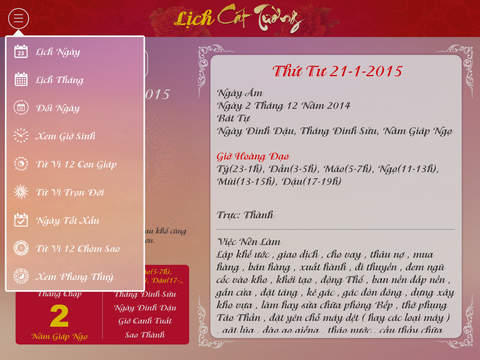 Lịch Cát Tường
Lịch Ngày
Lịch Tháng
Đổi Ngày
Xem Giờ Sinh
Tử Vi 12 Con Giáp
Tử Vi Trọn Đời
Ngày Tốt Xấu
Tử Vi 12 Chòm Sao
Xem Phong Thuỷ
2015
Tháng Chạp
2
Năm Giáp Ngọ
Tháng Đinh Sửu
Ngày Đinh Dậu
Giờ Canh Tuất
Sao Thành
Thứ Tư 21-1-2015
Ngày Âm
Ngày 2 Tháng 12 Năm 2014
Bát Tự
Ngày Đinh Dậu, Tháng Đinh Sửu, Năm Giáp Ngọ
Giờ Hoàng Đạo
Tý(23-1h), Dần(3-5h), Mão(5-7h), Ngọ(11-13h),
Mùi(13-15h), Dậu(17-19h)
Trực: Thành
Việc Nên Làm
Lập khế ước , giao dịch , cho vay , thâu nợ , mua
hàng , bán hàng , xuất hành , đi thuyền , đem ngũ
cốc vào kho , khởi tạo , động Thổ , ban nền đắp nền ,
gắn cửa , đặt táng , kê gác , gác đòn đông , dựng xây
kho vựa , làm hay sửa chữa phòng Bếp , thờ phụng
Táo Thần , đặt yên chỗ máy dệt ( hay các loại máy )
, gặt lúa , đào ao giếng , tháo nước , cầu thầy chữa